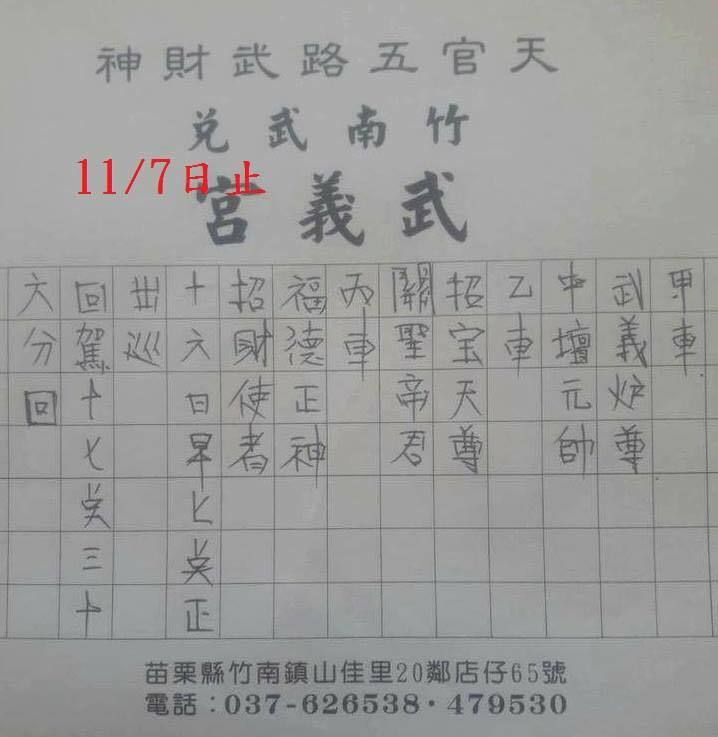 天官五路武財神
竹南武兌
11/7日止
武義宮
甲車
武義炉尊
中壇元帥
乙車
招宝天尊
關聖帝君
丙車
福德正神
招財使者
十六日早七㸃正
出巡
回駕十七㸃三十
六分回
苗栗縣竹南鎮山佳里20鄰店仔65號
電話：037-626538·479530